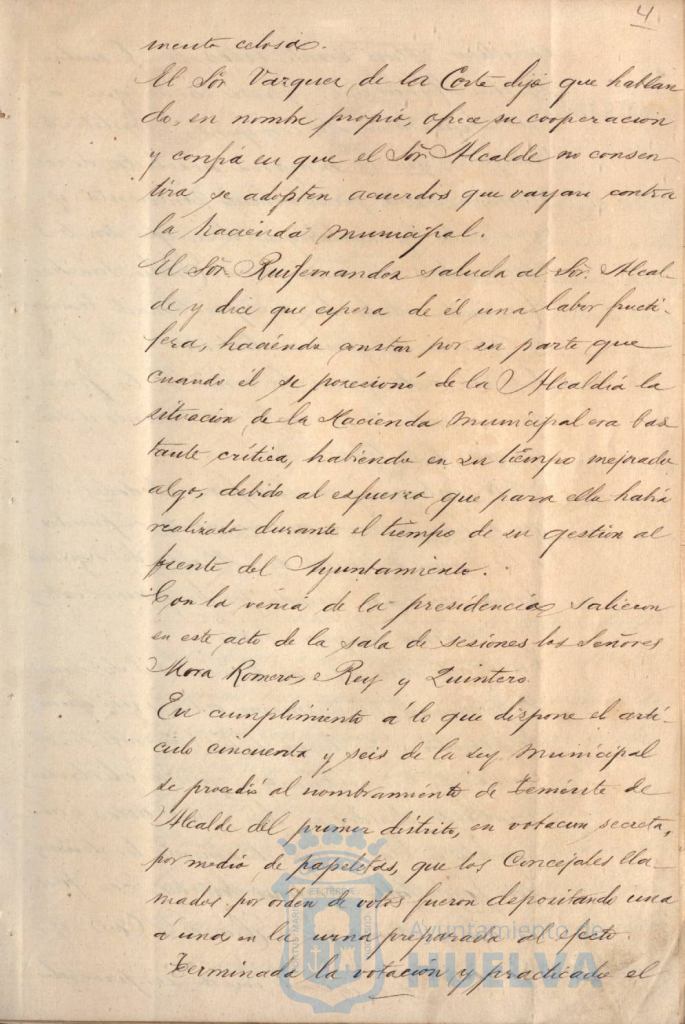 4.
mente celosa.
El Sór Vazquez de la Corte dijo que hablan
do, en nombre propio, ofrece su cooperacion
y confia en que el Sór Alcalde no consen-
tira se adopten acuerdos que vayan contra
la hacienda municipal.
El Sór Ruifernandez saluda al Sór. Alcal
de y dice que espera de él una labor fructi-
fera, haciendo constar por su parte que
cuando él se posesionó de la Alcaldia la
situacion de la Hacienda Municipal era bas
tante crítica, habiendo en su tiempo mejorado
algo, debido al esfuerzo que para ello habia
realizado durante el tiempo de su gestion al
frente del Ayuntamiento.
Con la venia de la presidencia salieron
en este acto de la sala de sesiones los Señores
Mora Romero, Rey y Quintero.
En cumplimiento á lo que dispone el artí-
culo cincuenta y seis de la ley Municipal
se procedió al nombramiento de Teniente de
Alcalde del primer distrito, en votacion secreta,
por medio de papeletas, que los Concejales lla-
mados por orden de votos fueron depositando una
á una en la urna preparada al efecto.
Terminada la votacion y practicado el
Ayuntamiento de
HUELVA